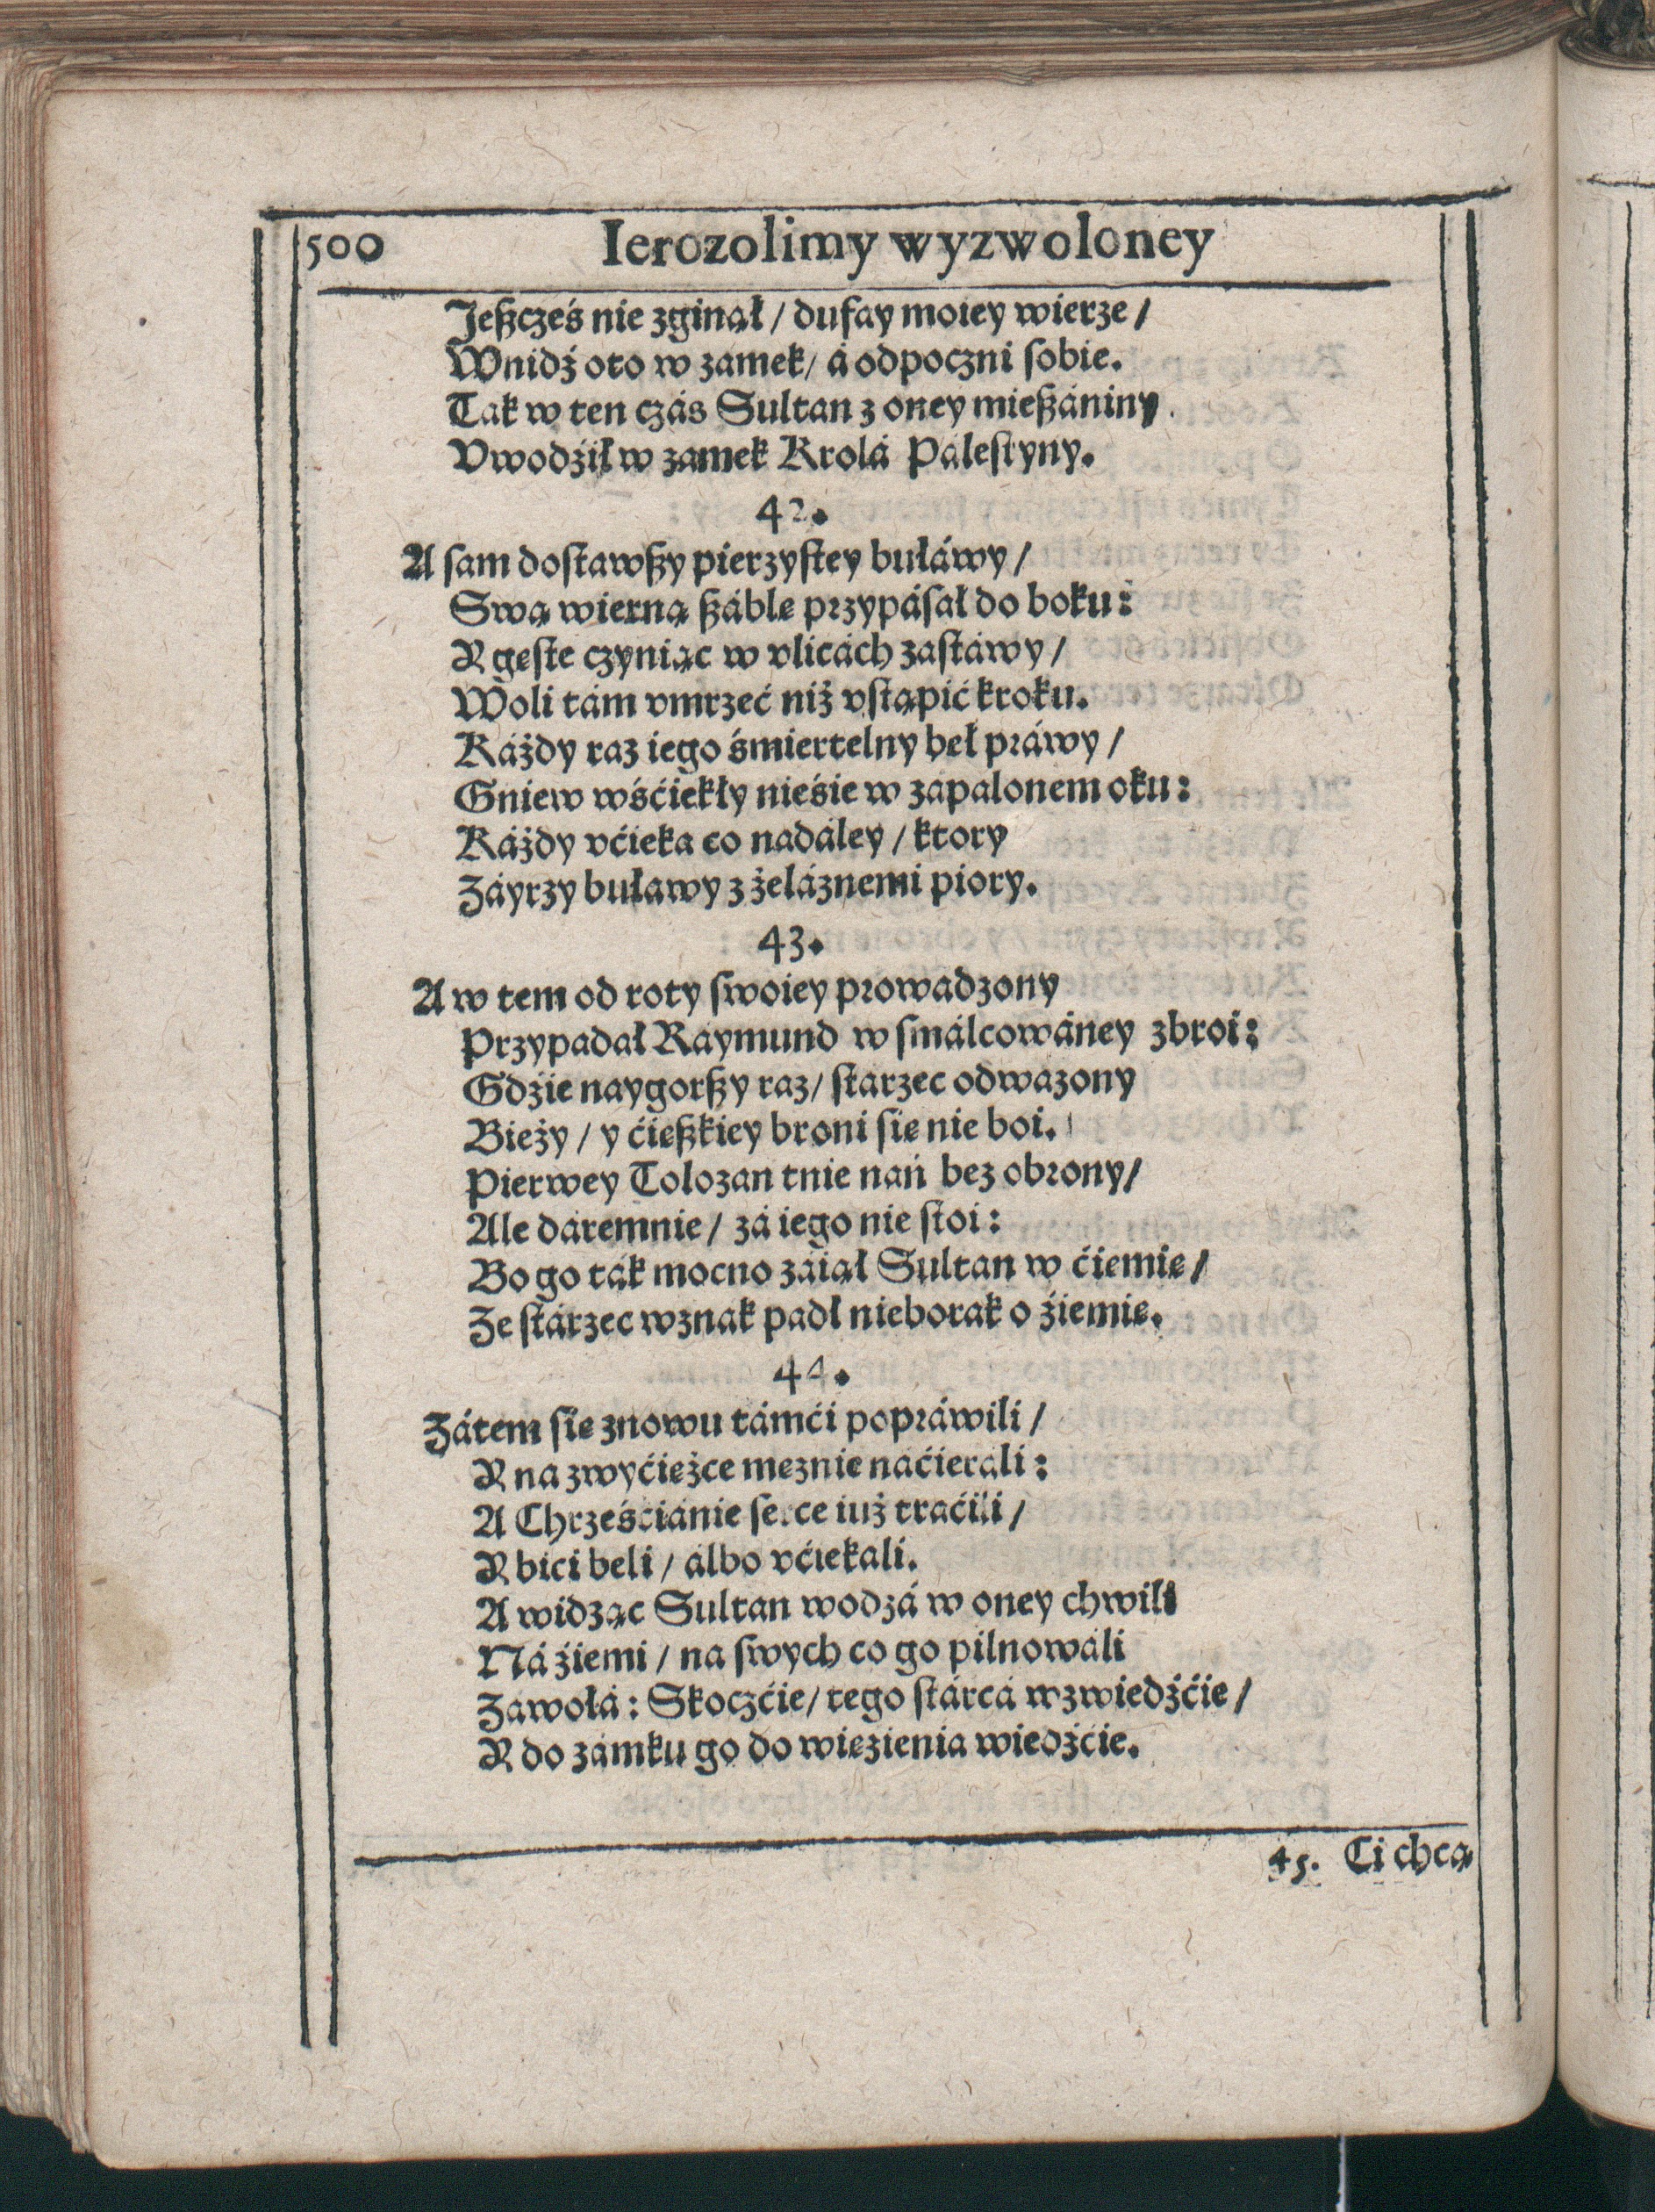 500 Ierozolimy wyzwoloney
Jeßcześ nie zginął / dufay moiey wierze /
Wnidź oto w zamek / á odpoczni ſobie.
Tak w ten czás Sultan z oney mießániny
Vwodźił w zamek Krolá Páleſtyny.
42.
A ſam doſtawßy pierzyſtey bułáwy /
Swą wierną ßáblę przypáſał do boku:
Y gęſte czyniąc w vlicách zaſtáwy /
Woli tám vmrzeć niż vſtąpić kroku.
Káżdy raz iego śmiertelny beł práwy /
Gniew wśćiekły nieśie w zápalonem oku:
Káżdy vćieka co nadáley / ktory
Záyrzy buławy z żeláznemi piory.
43.
A w tem od roty ſwoiey prowadzony
Przypadał Ráymund w ſmálcowáney zbroi:
Gdźie naygorßy raz / ſtarzec odwazony
Bieży / y ćięßkiey broni ſię nie boi.
Pierwey Tolozan tnie nań bez obrony /
Ale dáremnie / zá iego nie ſtoi:
Bo go ták mocno záiął Sultan w ćiemię /
Ze ſtárzec wznak padł nieborak o źiemię.
44.
Zátem ſię znowu támći popráwili /
Y na zwyćięzce mężnie naćierali:
A Chrześćiánie ſerce iuż traćili /
Y bići beli / álbo vćiekali.
A widząc Sultan wodzá w oney chwili
Ná źiemi / na ſwych co go pilnowáli
Zawołá: Skoczćie / tego ſtárcá wzwiedźćie /
Y do zamku go do więzienia wiedźćie.
45. Ci chcą